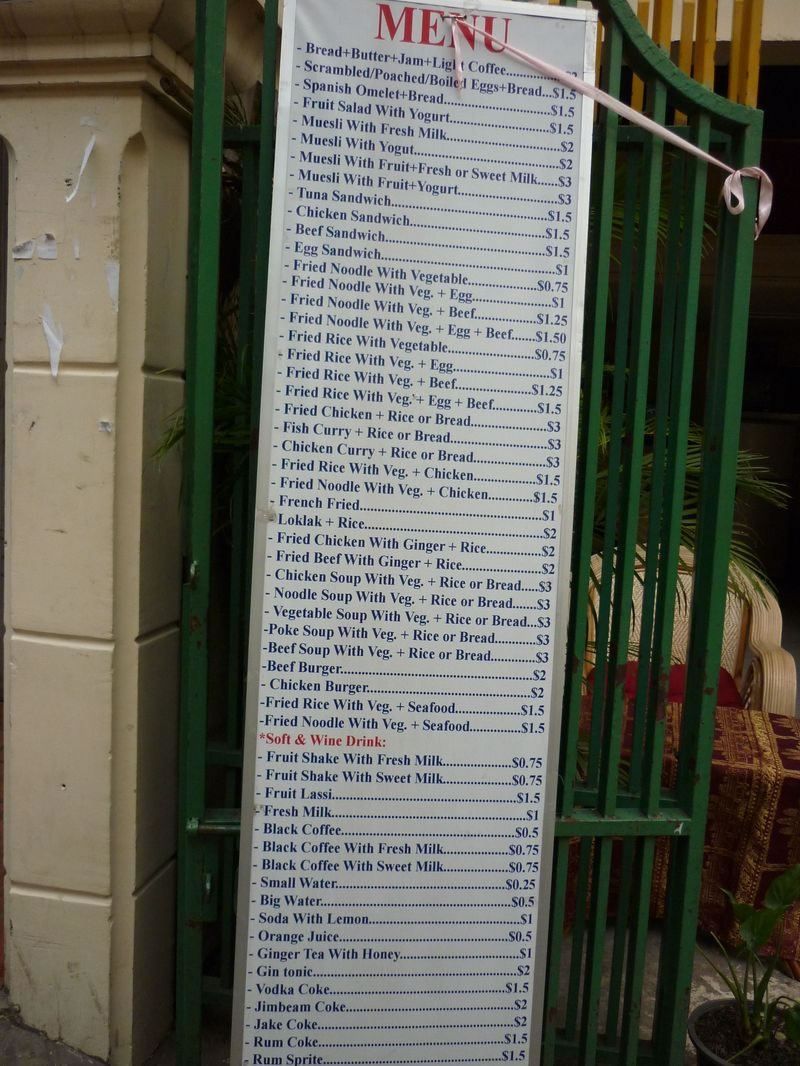 MENU
- Bread+Butter+Jam+Light Coffee..............$2
- Scrambled/Poached/Boiled Eggs+Bread...$1.5
- Spanish Omelet+Bread........................$1.5
- Fruit Salad With Yogurt......................$1.5
- Muesli With Fresh Milk........................$2
- Muesli With Yogut..............................$2
- Muesli With Fruit+Fresh or Sweet Milk......$3
- Muesli With Fruit+Yogurt.....................$3
- Tuna Sandwich.................................$1.5
- Chicken Sandwich..............................$1.5
- Beef Sandwich.................................$1.5
- Egg Sandwich..................................$1
- Fried Noodle With Vegetable..................$0.75
- Fried Noodle With Veg. + Egg.................$1
- Fried Noodle With Veg. + Beef................$1.25
- Fried Noodle With Veg. + Egg + Beef......$1.50
- Fried Rice With Vegetable....................$0.75
- Fried Rice With Veg. + Egg...................$1
- Fried Rice With Veg. + Beef..................$1.25
- Fried Rice With Veg. + Egg + Beef...........$1.5
- Fried Chicken + Rice or Bread................$3
- Fish Curry + Rice or Bread...................$3
- Chicken Curry + Rice or Bread................$3
- Fried Rice With Veg. + Chicken...............$1.5
- Fried Noodle With Veg. + Chicken............$1.5
- French Fried..................................$1
- Loklak + Rice.................................$2
- Fried Chicken With Ginger + Rice.............$2
- Fried Beef With Ginger + Rice................$2
- Chicken Soup With Veg. + Rice or Bread.....$3
- Noodle Soup With Veg. + Rice or Bread.......$3
- Vegetable Soup With Veg. + Rice or Bread...$3
-Poke Soup With Veg. + Rice or Bread..........$3
-Beef Soup With Veg. + Rice or Bread..........$3
-Beef Burger...................................$2
- Chicken Burger...............................$2
-Fried Rice With Veg. + Seafood................$1.5
-Fried Noodle With Veg. + Seafood.............$1.5
*Soft & Wine Drink:
- Fruit Shake With Fresh Milk..................$0.75
- Fruit Shake With Sweet Milk..................$0.75
- Fruit Lassi...................................$1.5
- Fresh Milk....................................$1
- Black Coffee..................................$0.5
- Black Coffee With Fresh Milk.................$0.75
- Black Coffee With Sweet Milk.................$0.75
- Small Water...................................$0.25
- Big Water.....................................$0.5
- Soda With Lemon...............................$1
- Orange Juice..................................$0.5
- Ginger Tea With Honey.........................$1
- Gin tonic.....................................$2
- Vodka Coke....................................$1.5
- Jimbeam Coke..................................$2
- Jake Coke.....................................$2
- Rum Coke......................................$1.5
- Rum Sprite....................................$1.5